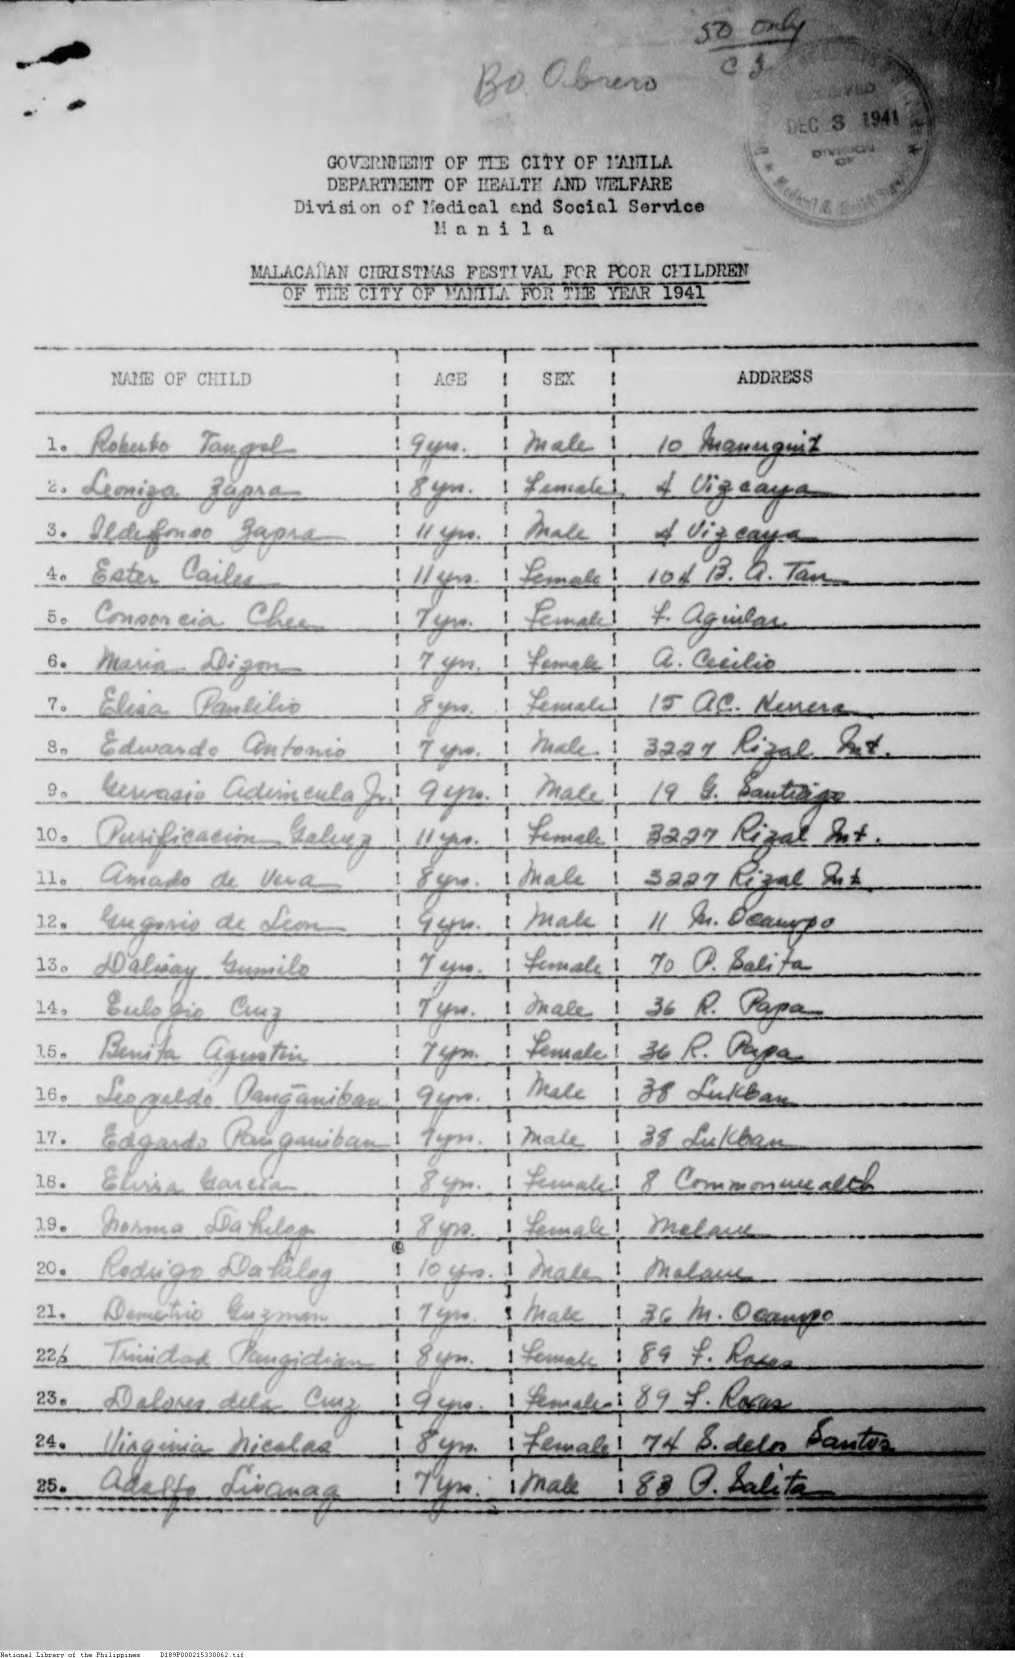 50 only
Bo. Obrero
DEC 3 1941
GOVERNMENT OF THE CITY OF MANILA
DEPARTMENT OF HEALTH AND WELFARE
Division of Medical and Social Service
M a n i l a
MALACAÑAN CHRISTMAS FESTIVAL FOR POOR CHILDREN
OF THE CITY OF MANILA FOR THE YEAR 1941
NAME OF CHILD AGE SEX ADDRESS
1. Roberto Tangol 9 yrs. Male 10 Manuguit
2. Leoniza Zapra 8 yrs. Female 4 Vizcaya
3. Ildefonso Zapra 11 yrs. Male 4 Vizcaya
4. Ester Cailes 11 yrs. Female 104 B. A. Tan
5. Consorcia Chee 7 yrs. Female F. Aguilar
6. Maria Dizon 7 yrs. Female A. Cecilio
7. Elisa Panlilio 8 yrs. Female 15 AC. Herrera
8. Edwardo Antonio 7 yrs. Male 3227 Rizal Int.
9. Gervasio Adimcula Jr. 9 yrs. Male 19 G. Santiago
10. Purificacion Galvez 11 yrs. Female 3227 Rizal Int.
11. Amado de Vera 8 yrs. Male 3227 Rizal Int
12. Gregorio de Leon 9 yrs. Male 11 M. Ocampo
13. Daligay Gumilo 7 yrs. Female 70 P. Salita
14. Eulogio Cruz 7 yrs. Male 36 R. Papa
15. Benita Agustin 7 yrs. Female 36 R. Papa
16. Leopoldo Panganiban 9 yrs. Male 38 Lukban
17. Edgardo Panganiban 7 yrs. Male 38 Lukban
18. Elvira Garcia 8 yrs. Female 8 Commonwealth
19. Norma Dahilog 8 yrs. Female Molave
20. Rodrigo Dahilog 10 yrs. Male Molave
21. Demetrio Guzman 7 yrs. Male 36 M. Ocampo
22. Trinidad Pangidian 8 yrs. Female 89 F. Roxas
23. Dolores dela Cruz 9 yrs. Female 89 F. Roxas
24. Virginia Nicolas 8 yrs. Female 74 S. delos Santos
25. Adolfo Liwanag 7 yrs. Male 83 P. Salita
National Library of the Philippines D189P000215330062.tif